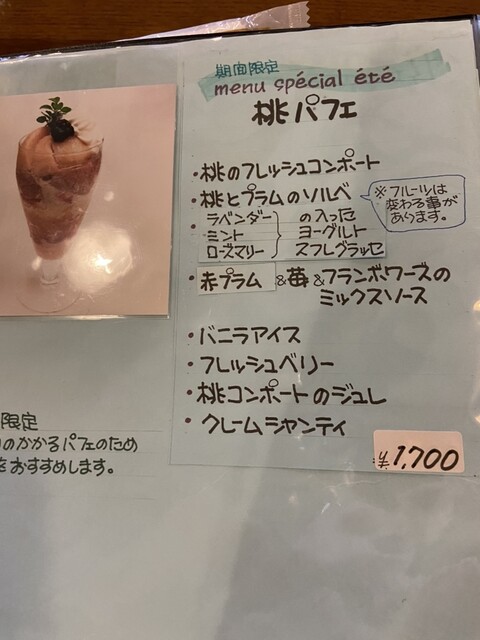 期間限定
menu spécial été
桃パフェ
・桃のフレッシュコンポート
・桃とプラムのソルベ
※フルーツは
変わる事が
あります。
・ラベンダー
ミント
ローズマリー
の入った
ヨーグルト
スフレグラッセ
・赤プラム&苺&フランボワーズの
ミックスソース
・バニラアイス
・フレッシュベリー
・桃コンポートのジュレ
・クレームシャンティ
¥1,700
限定
のかかるパフェのため
をおすすめします。